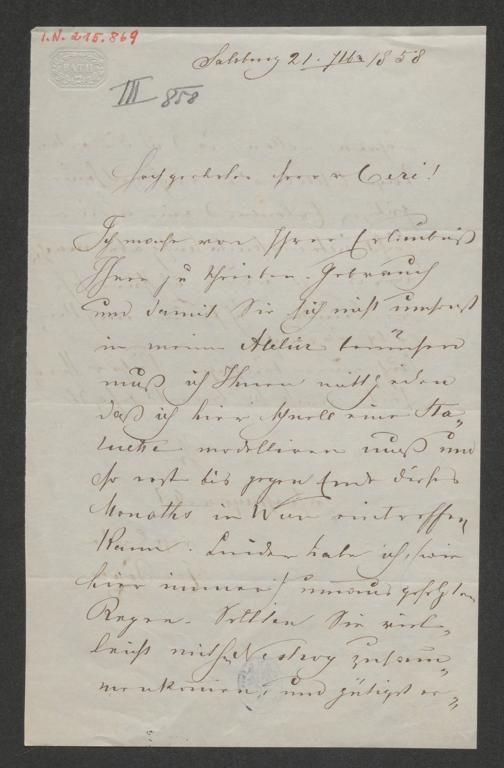 I.N. 215.869
BATH
Salzburg 21. 7tbr 1858
III 858
Hochgeehrter Herr v Ceri!
Ich mache von Ihrer Erlaubniß
Ihnen zu schreiben Gebrauch
und damit Sie sich nicht umsonst
in mein Atelier bemühen
muß ich Ihnen mittheilen
daß ich hier schnell eine Sta„
tuette modelliren muß und
so erst bis gegen Ende dieses
Monaths in Wien eintreffen
kann. Leider habe ich, wie
hier immer! unausgesetzten
Regen. Sollten Sie viel„
leicht mit Nestroy zusam„
menkommen, und gütigst er„